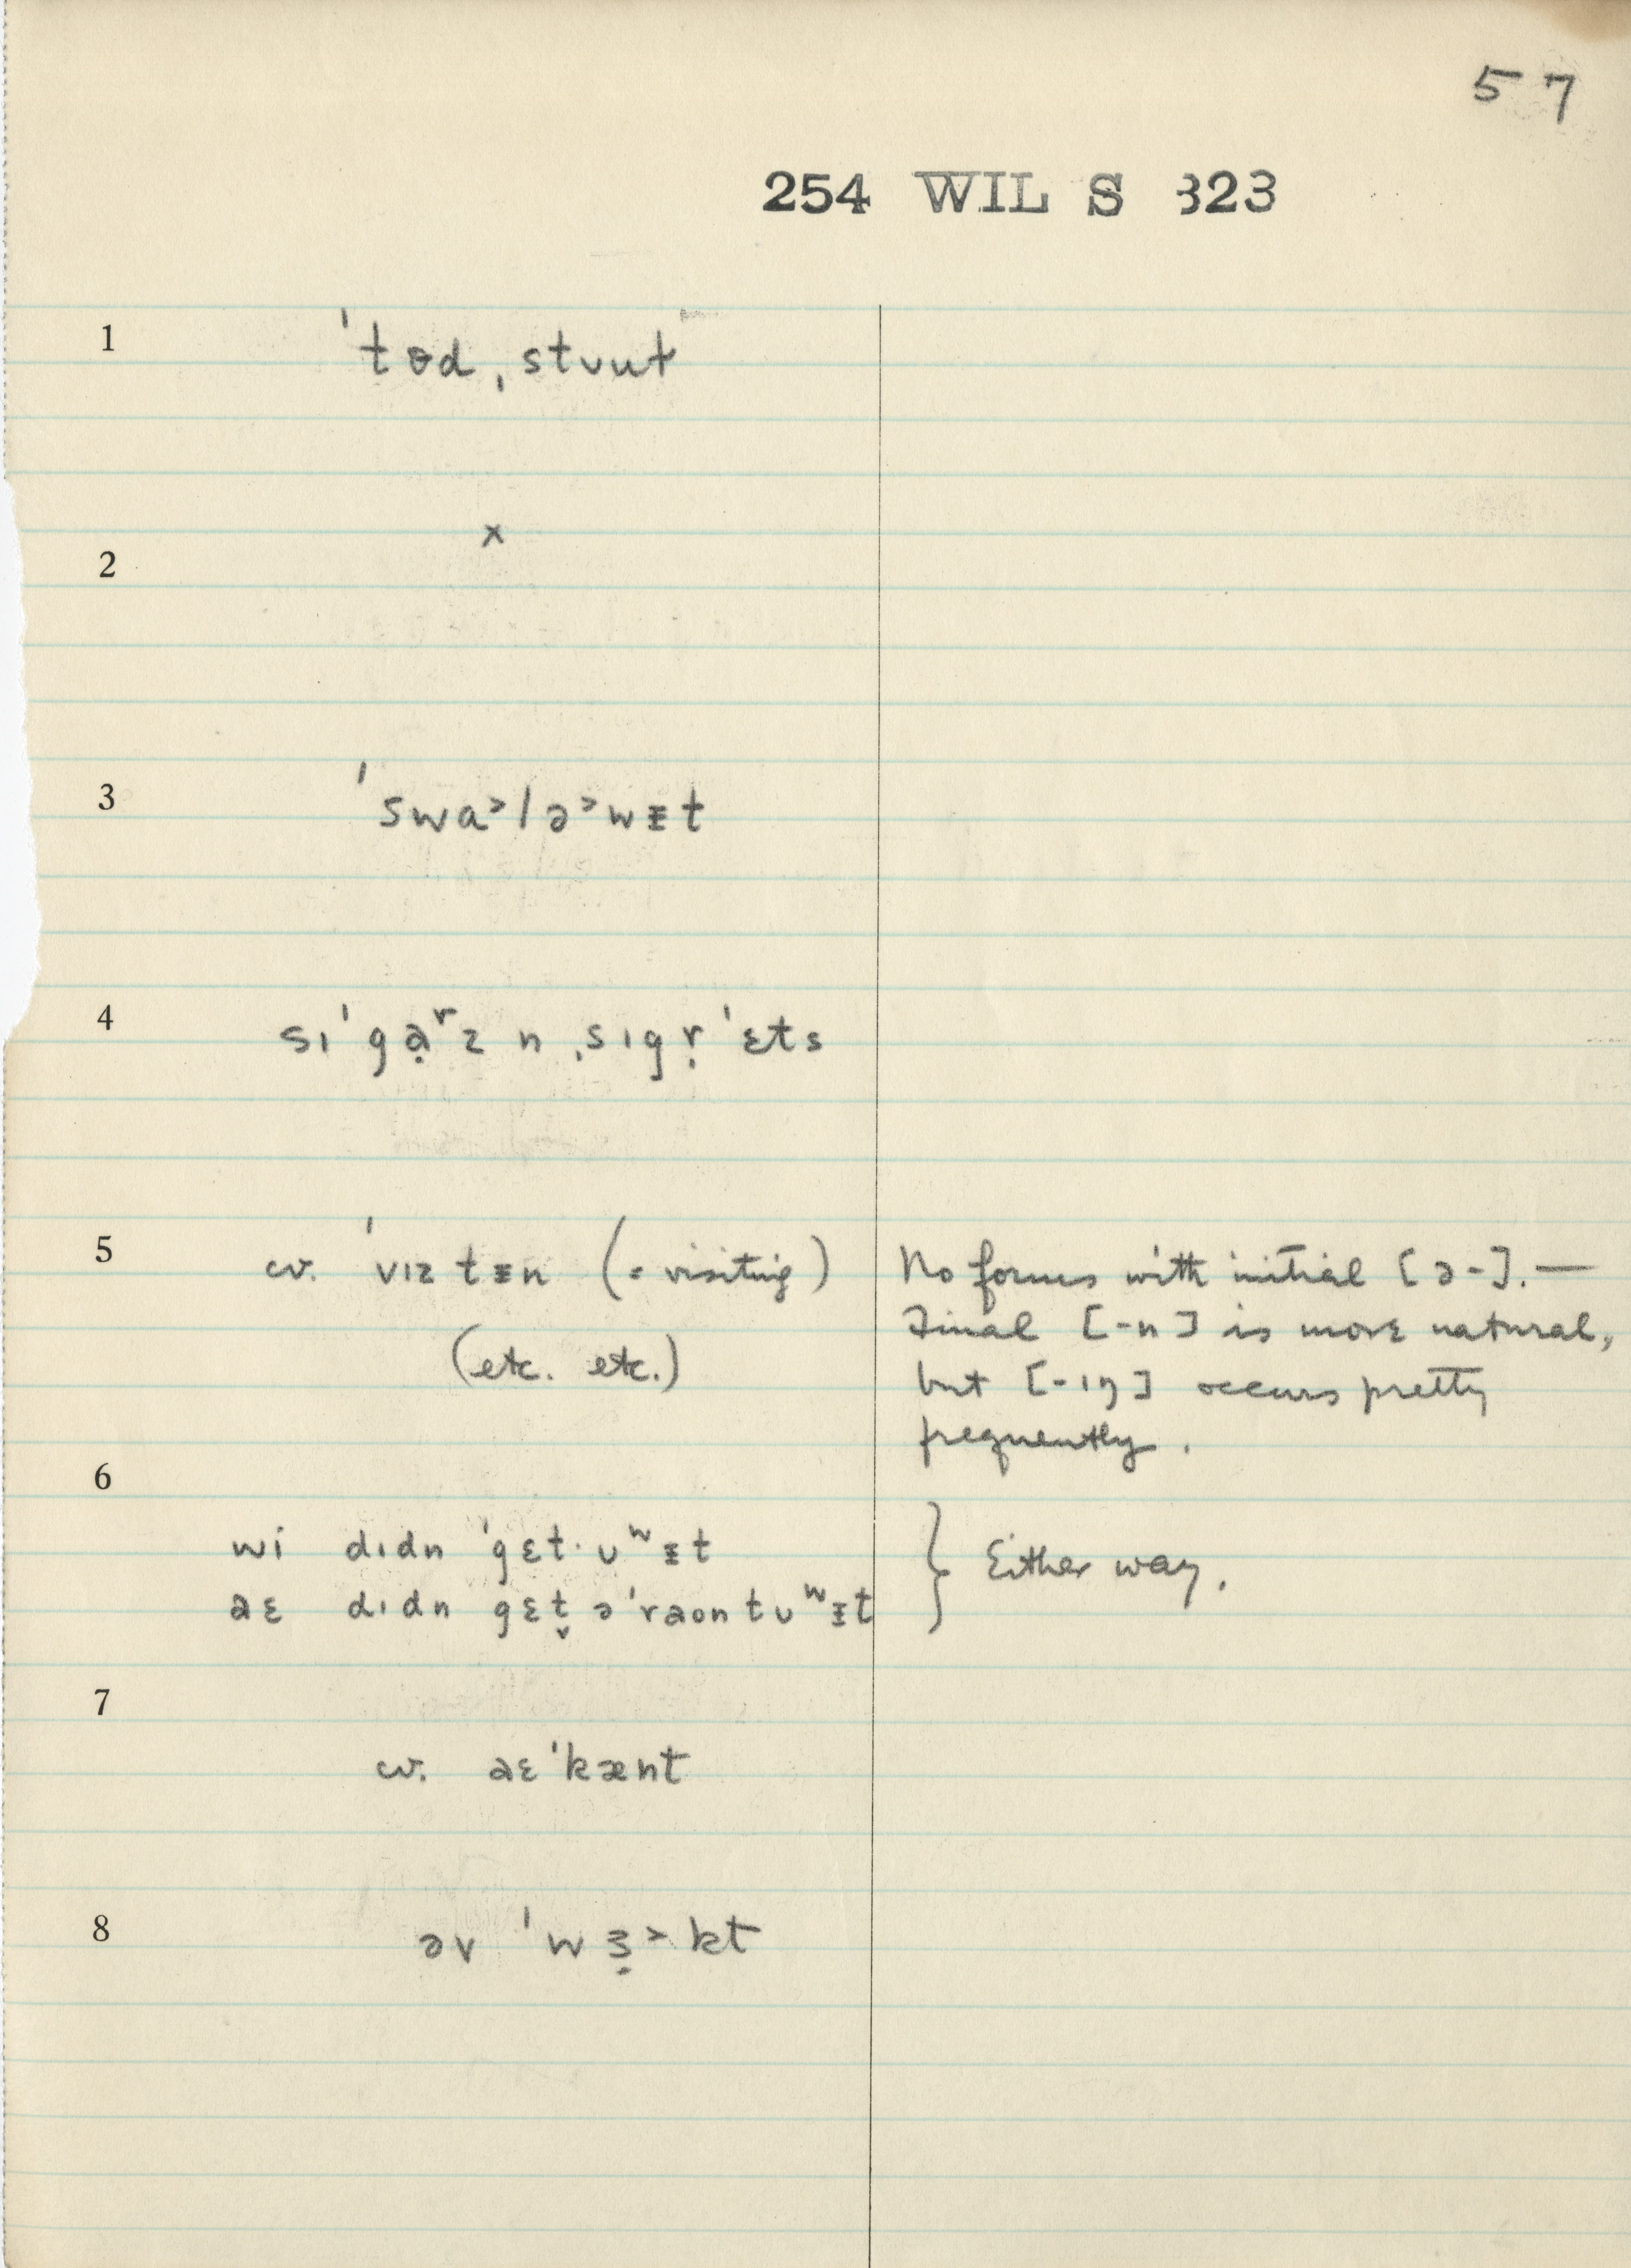 57
254 WIL S 323
1 ˈtɵd ˌstʊut
2 x
3 ˈswɑ˃lə˃wᵻt
4 sɪˈgạʳz n ˌsɪgṛˈɛts
5 cv. ˈvɪztᵻn (= visiting) No forms with initial [ə-]. —
Final [-n] is more natural,
(etc. etc.) but [-ɪŋ] occurs pretty
frequently.
6
wi dɪdn ˈgɛt· ʊʷᵻt } Either way.
aɛ dɪdn gɛt̬ əˈraontʊʷᵻt
7
cv. aɛˈkænt
8 əv ˈwɜ̣˃kt